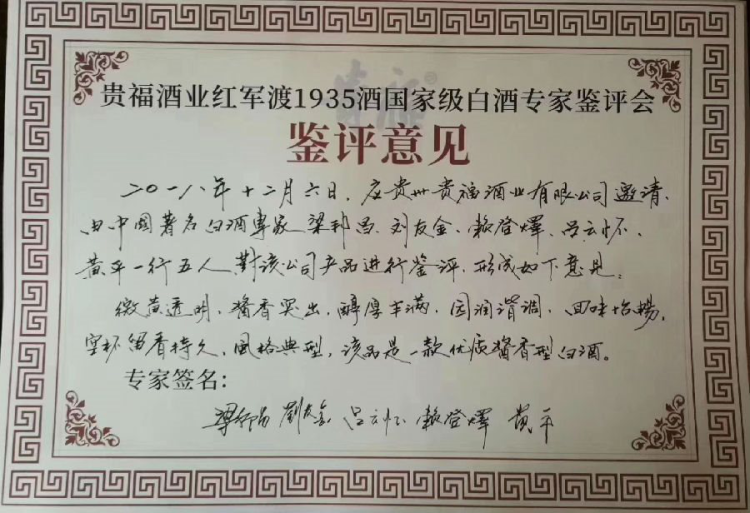 贵福酒业红军渡1935酒国家级白酒专家鉴评会
鉴评意见
二〇一八年十二月六日，应贵州贵福酒业有限公司邀请，
由中国著名白酒專家梁邦昌、刘友金、赖登燡、吕云怀、
黄平一行五人對該公司产品进行鉴评，形成如下意見：
微黄透明，醬香突出，醇厚丰满，圆润谐调，回味怡暢，
空杯留香持久，風格典型，该品是一款优质醬香型白酒。
专家签名：
梁邦昌 劉友金 吕云怀 赖登燡 黄平